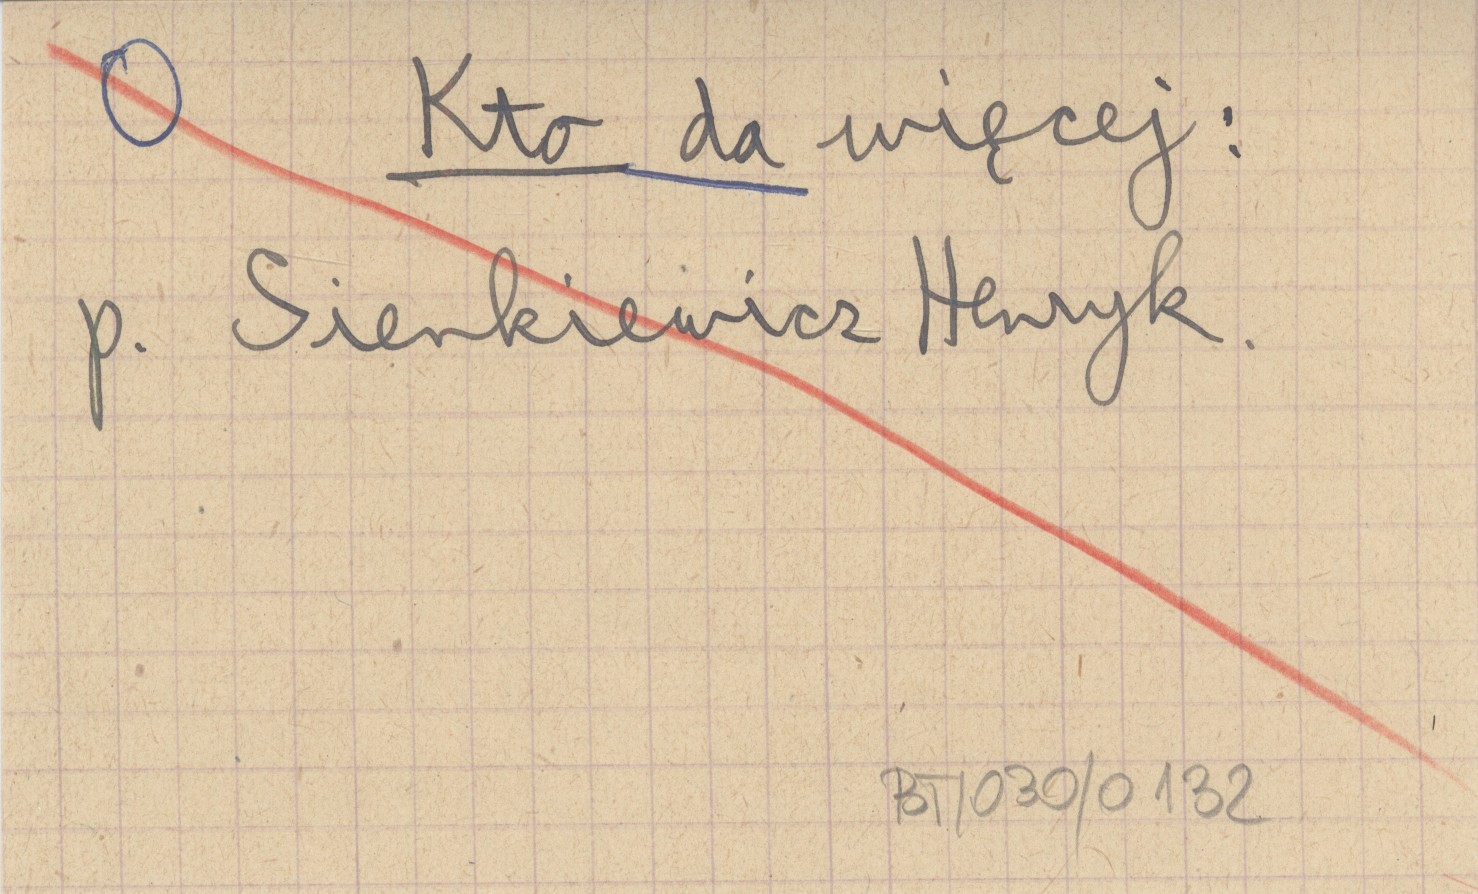 O Kto da więcej:
p. Sienkiewicz Henryk.
BT/030/0132